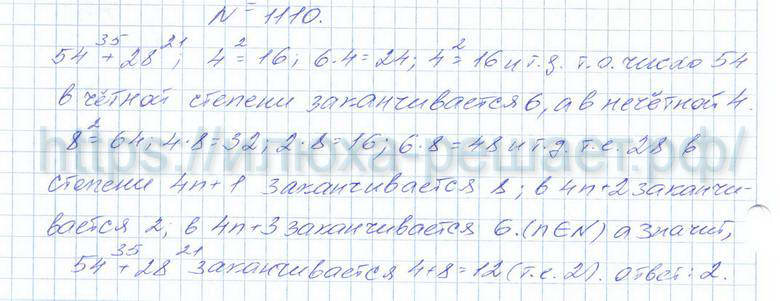 № 1110.
54³⁵ + 28²¹; 4² = 16; 6·4 = 24; 4² = 16 и т.д. т.о. число 54
в чётной степени заканчивается 6, а в нечётной 4.
8² = 64; 4·8 = 32; 2·8 = 16; 6·8 = 48 и т.д. т.е. 28 в
https://илюха-решает.рф/
степени 4n+1 заканчивается 8; в 4n+2 заканчи-
вается 2; в 4n+3 заканчивается 6. (n∈N) а значит,
54³⁵ + 28²¹ заканчивается 4+8=12 (т.е. 2). ответ: 2.